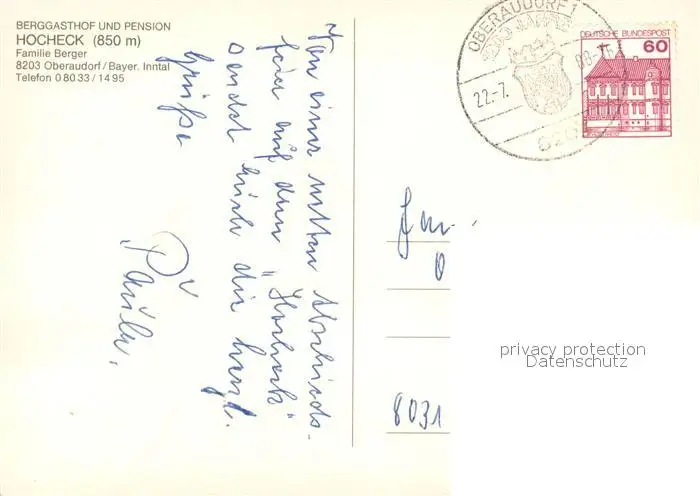 BERGGASTHOF UND PENSION
HOCHECK (850 m)
Familie Berger
8203 Oberaudorf/Bayer. Inntal
Telefon 0 80 33 / 14 95
Von einer netten Abschieds-
feier auf dem "Hocheck"
sendet euch die herzl.
Grüße
Paula.
OBERAUDORF 1
22.-7.
820
DEUTSCHE BUNDESPOST
60
8031
privacy protection
Datenschutz